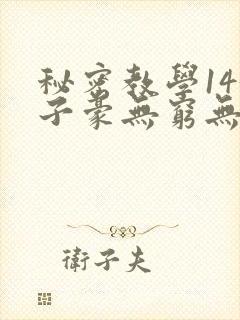 秘密教學14
子豪無窮無
衛子夫